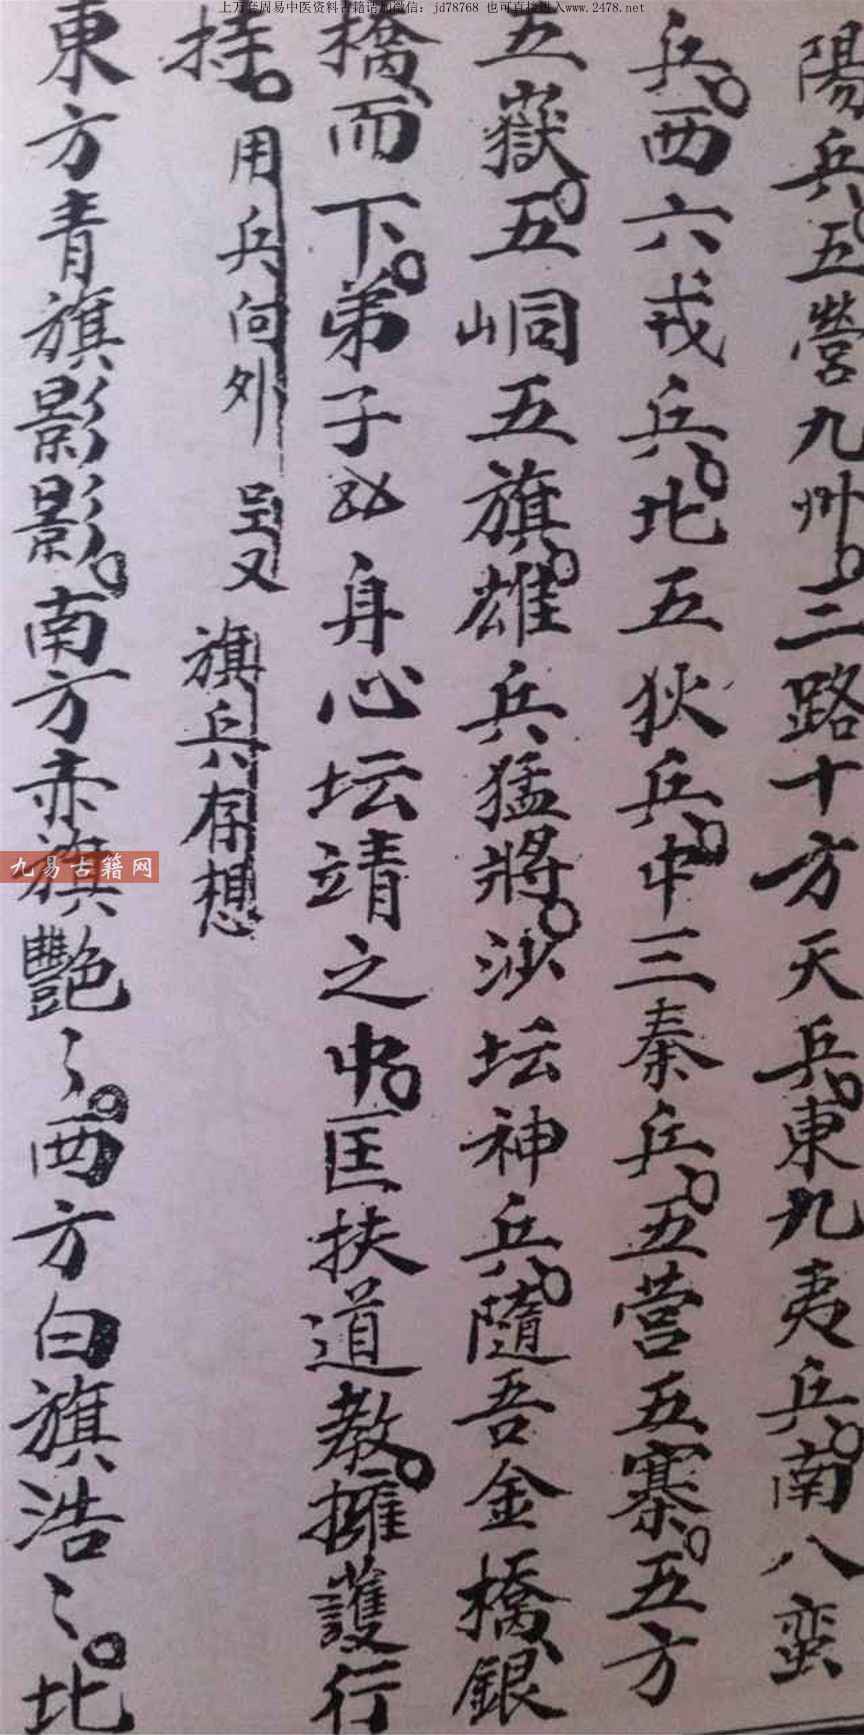 上万套周易中医资料古籍请加微信：jd78768 也可直接进入www.2478.net
陽兵。五營九州。三路十方天兵。東九夷兵。南八蛮
兵。西六戎兵。北五狄兵。中三秦兵。五营五寨。五方
五嶽。五峒五旗。雄兵猛將。沙坛神兵。隨吾金橋銀
橋而下。弟子身心坛靖之中。匡扶道教。擁護行
持。用兵向外 旗兵存想
東方青旗影影。南方赤旗艷〻。西方白旗浩〻。北
九易古籍网